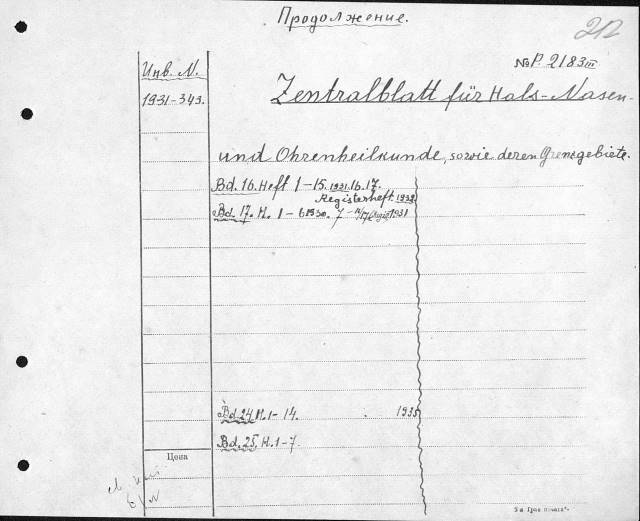 Продолжение.
212
№ P. 2183 III
Инв. N.
1931-343.
Zentralblatt für Hals-Nasen-
und Ohrenheilkunde, sowie deren Grenzgebiete.
Bd. 16. Heft 1-15. 1931. 16. 17.
Registerheft 1932
Bd. 17. H. 1-6 1930. 7- 1931
Bd. 24 H. 1-14. 1935
Bd. 25. H. 1-7.
Цена